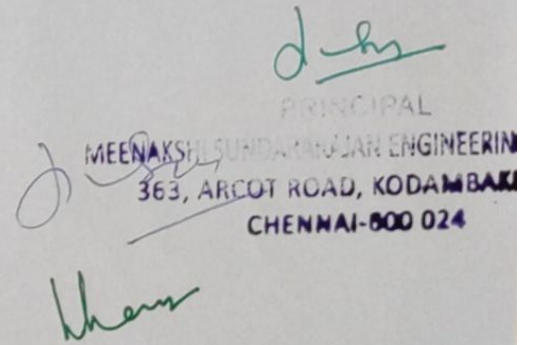 PRINCIPAL
MEENAKSHI SUNDARARAJAN ENGINEERIN
363, ARCOT ROAD, KODAMBAK
CHENNAI-600 024